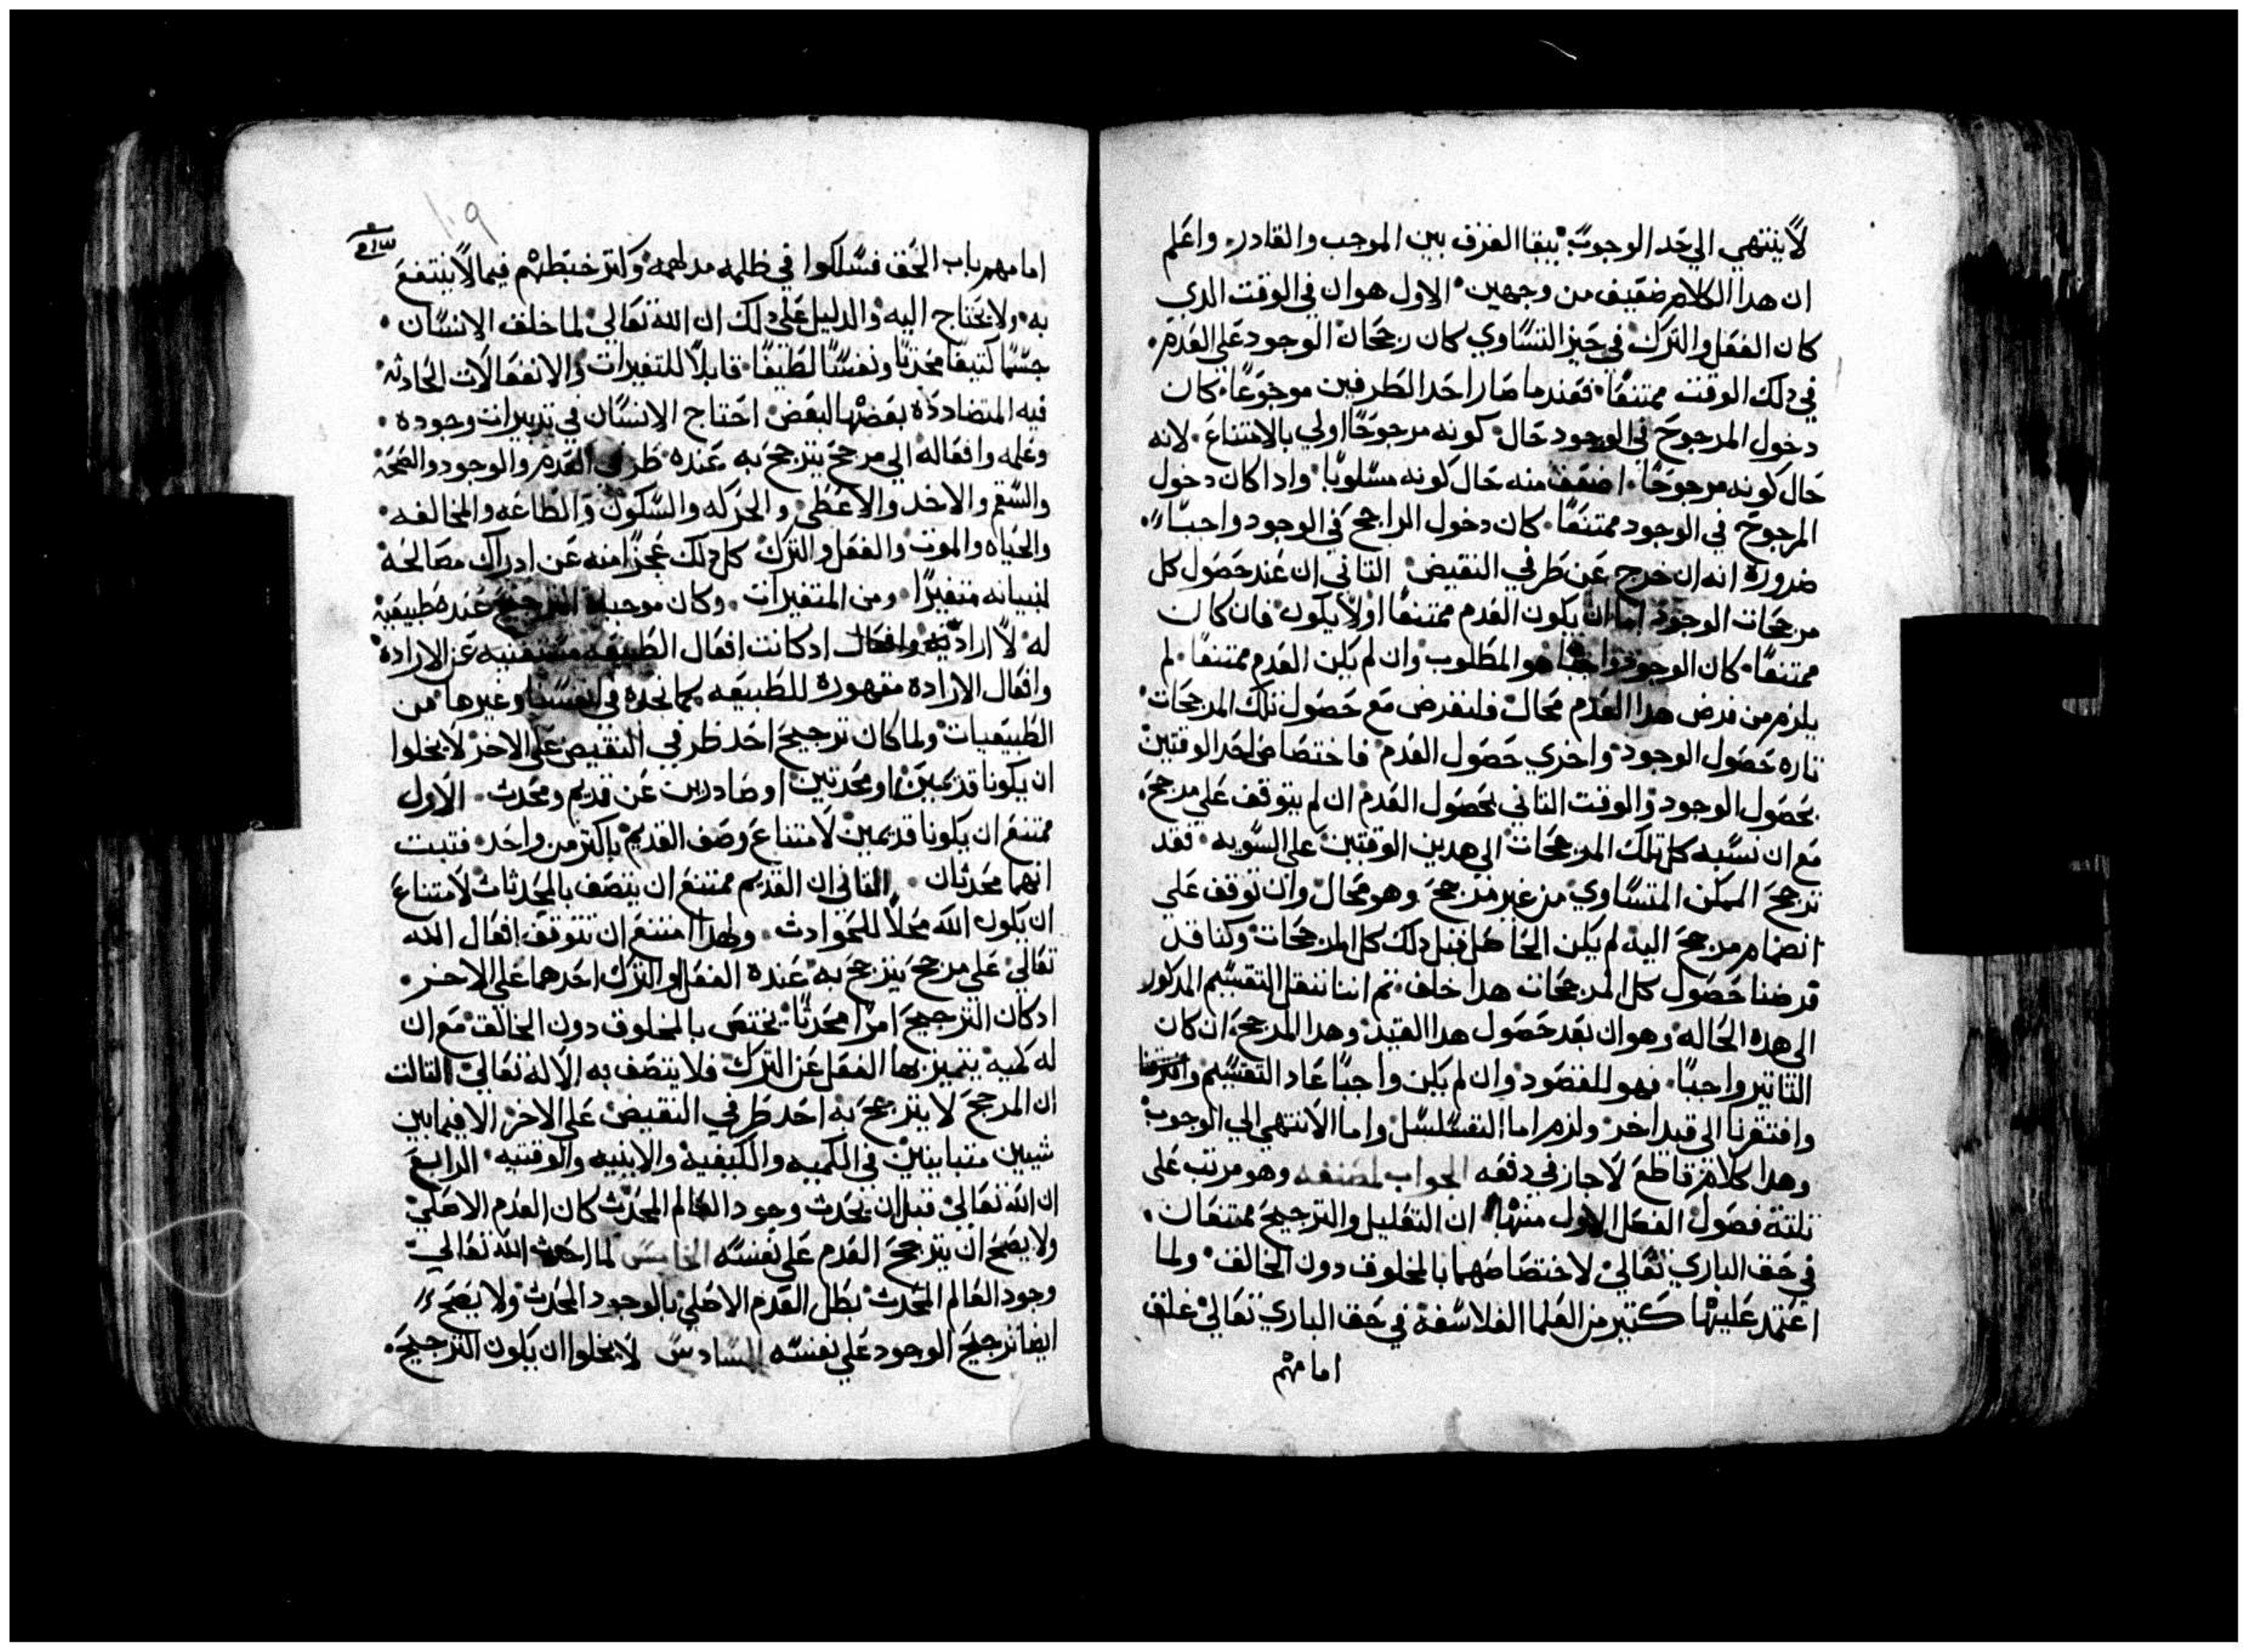 لا ينتهي الي حد الوجوب يبقا الفرق بين الموجب والقادر واعلم
ان هدا الكلام ضعيف من وجهين الاول هو ان في الوقت الدي
كان الفعل والترك في حيز التساوي كان رجحان الوجود علي العدم
في دلك الوقت ممتنعًا فعندما صار احد الطرفين موجوعًا كان
دخول المرجوح في الوجود حال كونه مرجوحًا اولي بالامتناع لانه
حال كونه مرجوحًا اضعف منه حال كونه مسلوبًا وادا كان دخول
المرجوح في الوجود ممتنعًا كان دخول الراجح في الوجود واجبًا
ضروره انه ان خرج عن طرفي النقيض التاني ان عند حصول كل
مرجحات الوجود اما ان يكون العدم ممتنعًا اولا يكون فان كان
ممتنعًا كان الوجود واجبًا هو المطلوب وان لم يكن العدم ممتنعًا لم
يلزم من فرض هدا العدم محال فلنفرض مع حصول تلك المرجحات
تاره حصول الوجود واخري حصول العدم فاختصاص احد الوقتين
بحصول الوجود والوقت التاني بحصول العدم ان لم يتوقف علي مرجح
مع ان نسبه كل تلك المرجحات الي هدين الوقتين علي السويه فقد
ترجح الممكن المتساوي من غير مرجح وهو محال وان توقف علي
انضمام مرجح اليه لم يكن الحاصل قبل دلك كل المرجحات وكنا قد
فرضنا حصول كل المرجحات هدا خلف ثم اننا ننقل التقسيم المدكور
الي هده الحاله وهو ان بعد حصول هدا القيد وهدا المرجح ان كان
التاتير واجبًا فهو المقصود وان لم يكن واجبًا عاد التقسيم
وافتقرنا الي قيد اخر ولزم اما التسلسل واما الانتهي الي الوجوب
وهدا كلام قاطع لاجاز في دفعه الجواب لمصنفه وهو مرتب علي
تلتة فصول الفصل الاول منها ان التعليل والترجيح ممتنعان
في حق الباري تعالي لاختصاصهما بالمخلوق دون الخالق ولما
اعتمد عليها كتير من العلما الفلاسفة في حق الباري تعالي غلق
امامهم
١٠٩
امامهم باب الحق فسلكوا في ظلمه مدلهمه وكتر خبطهم فيما لا ينتفع
به ولا يحتاج اليه والدليل علي دلك ان الله تعالي لما خلق الانسان
جسمًا كتيفًا محدثًا ونفسًا لطيفًا قابلاً للتغيرات والانفعالات الحادثه
فيه المتضادده بعضها البعض احتاج الانسان في تدبيرات وجوده
وعلمه وافعاله الي مرجح يترجح به عنده طرفي العدم والوجود والصحه
والسقم والاخد والاعطي والحركه والسكون والطاعه والمخالفه
والحياه والموت والفعل والترك كل دلك عجزًا منه عن ادراك مصالحة
لنبيانه متغيرًا ومن المتغيرات وكان موجبة الترجيح عند طبيعية
له لا ارادية وافعال ادكانت افعال الطبيعه مستغنيه عن الاراده
وافعال الاراده مقهوره للطبيعه كما نجده في انفسنا وغيرها من
الطبيعيات ولما كان ترجيح احد طرفي النقيض علي الاخر لا يخلوا
ان يكونا قديمين او محدتين او صادرين عن قديم ومحدث الاول
ممتنع ان يكونا قديمين لامتناع وصف القديم باكتر من واحد فتبت
انهما محدثان الثاني ان القديم ممتنع ان يتصف بالمحدثات لامتناع
ان يكون الله محلاً للحوادث ولهدا امتنع ان تتوقف افعال الله
تعالي علي مرجح يترجح به عنده الفعل والترك احدهما علي الاخر
ادكان الترجيح امرًا محدثًا يختص بالمخلوق دون الخالق مع ان
له كميه يتميز بها الفعل عن الترك فلا يتصف به الاله تعالي التالت
ان المرجح لا يترجح به احد طرفي النقيض علي الاخر الا فيما بين
شيين متباينين في الكميه والكيفية والاينيه والوقتيه الرابع
ان الله تعالي قبل ان يحدث وجود العالم المحدث كان العدم الاصلي
ولا يصح ان يترجح العدم علي نفسه الخامس لما احدث الله تعالي
وجود العالم المحدث بطل العدم الاصلي بالوجود المحدث ولا يصح
ايضا ترجيح الوجود علي نفسه السادس لا يخلوا ان يكون الترجيح